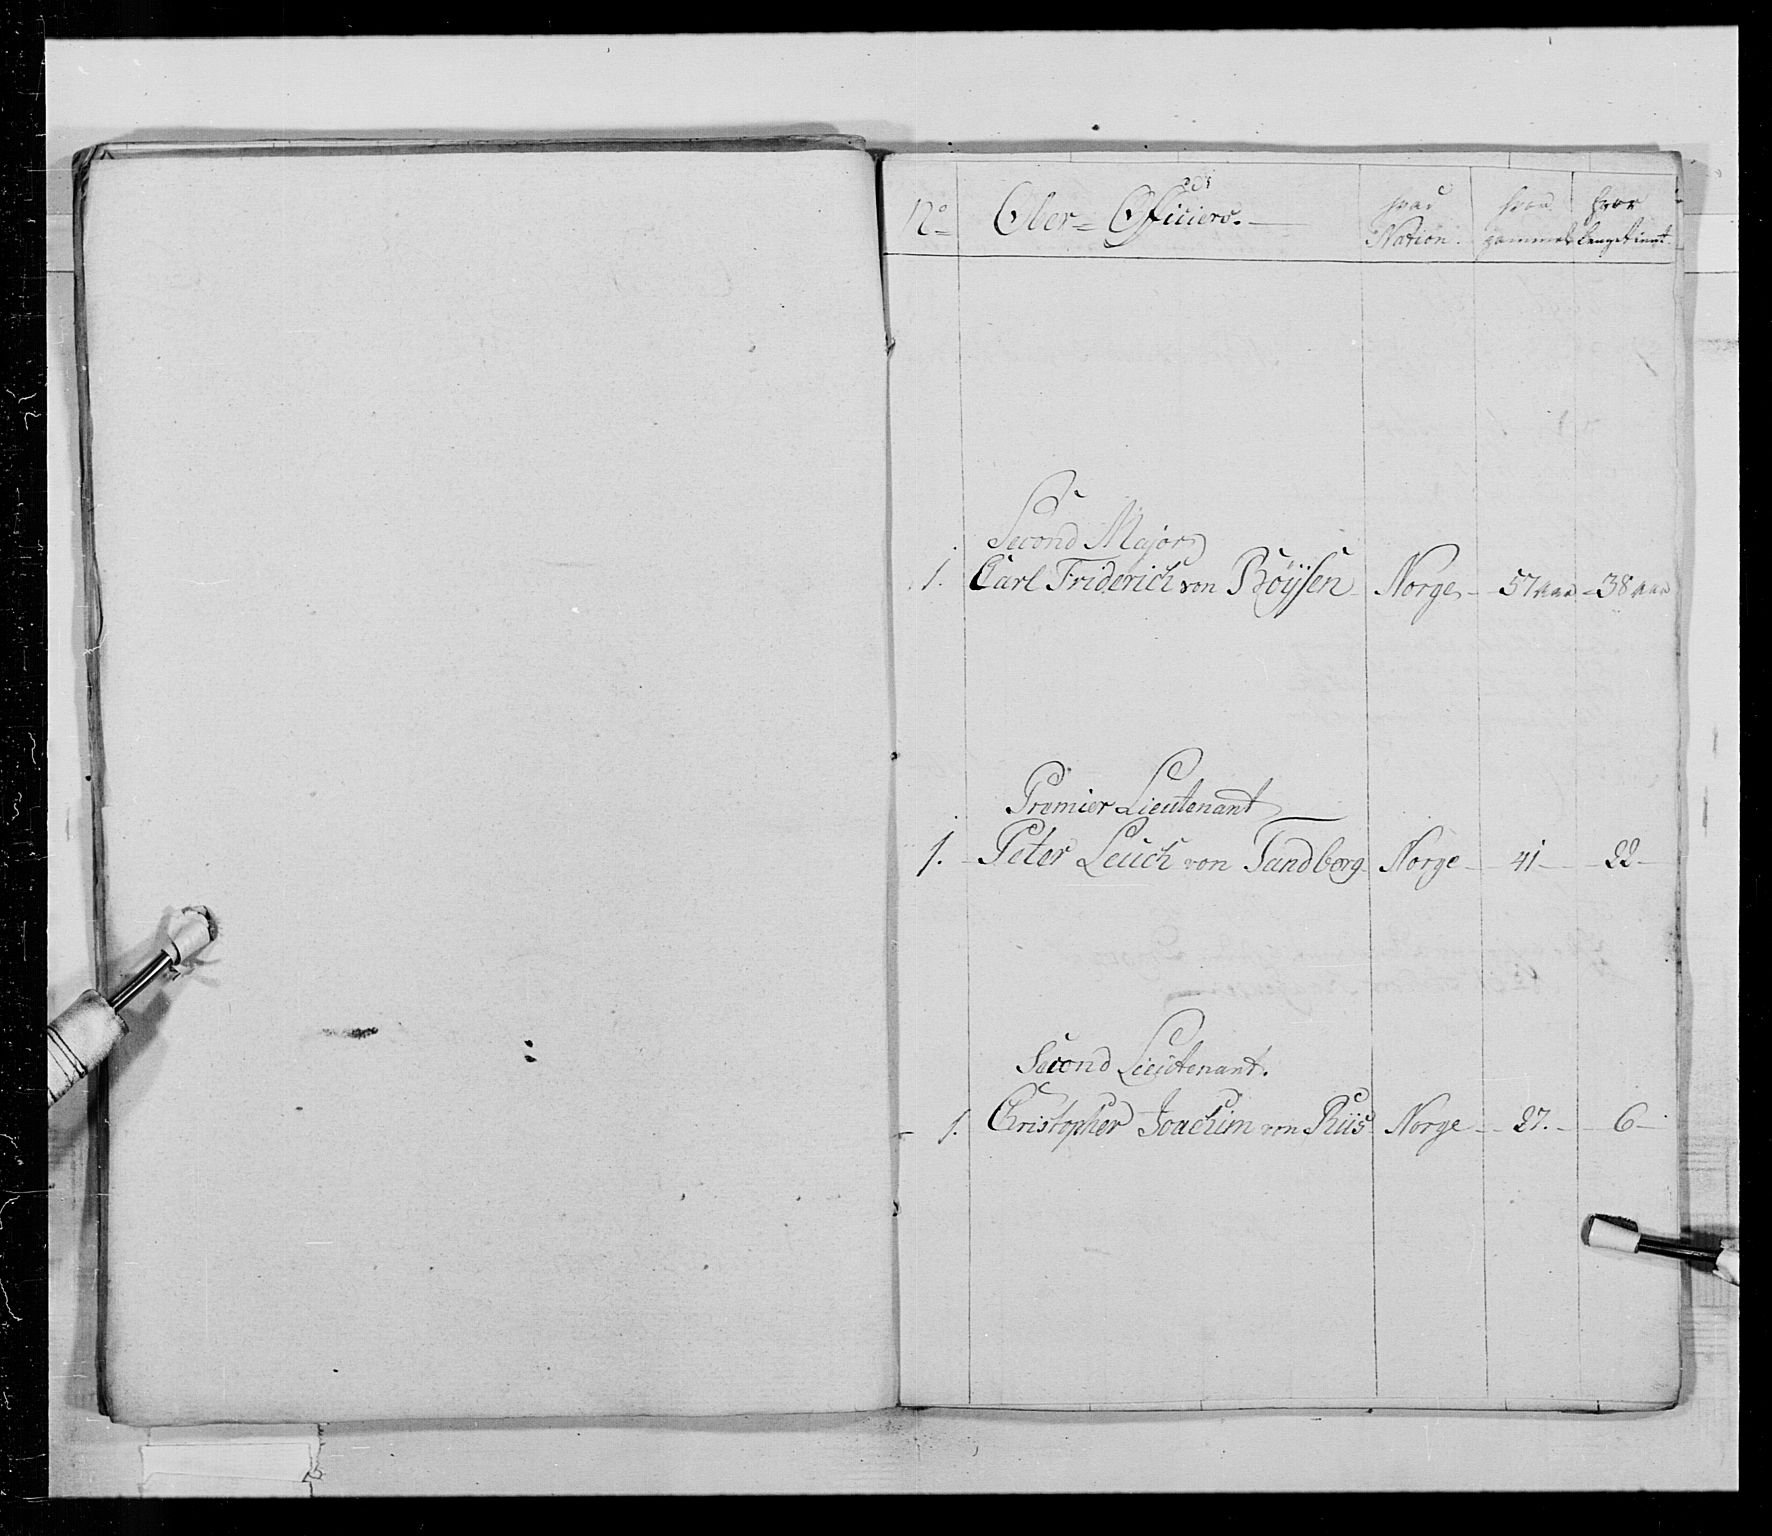 No Ober-Officiers. hvad Nation. hvor gammel hvor længe tient.
Second Major
1. Carl Friderich von Böÿsen Norge 57 aar 38 aar
Premier Lieutenant
1. Peter Leuch von Tandberg Norge 41 22
Second Lieutenant.
1. Christopher Joachim von Riis Norge 27. 6